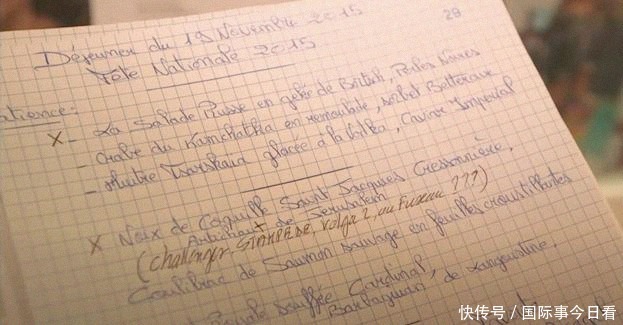 28
Déjeuner du 19 Novembre 2015
Fête Nationale 2015
X - La Salade Russe en gelée de Bortsh, Perles Noires
- Crabe du Kamchatka en remoulade, sorbet Betterave
- Huitre Tsarskaya glacée à la Vodka, Caviar Imperial
X Noix de Coquille Saint Jacques Cressonnière,
Artichaut de Jerusalem
(Challenger - STAMPEDE, Volga 2, au Fuseau ???)
Coulibiac de Saumon sauvage en feuilles croustillantes
soufflée Cardinal,
Barbajuan de Langoustine.
快传号 / 国际事今日看